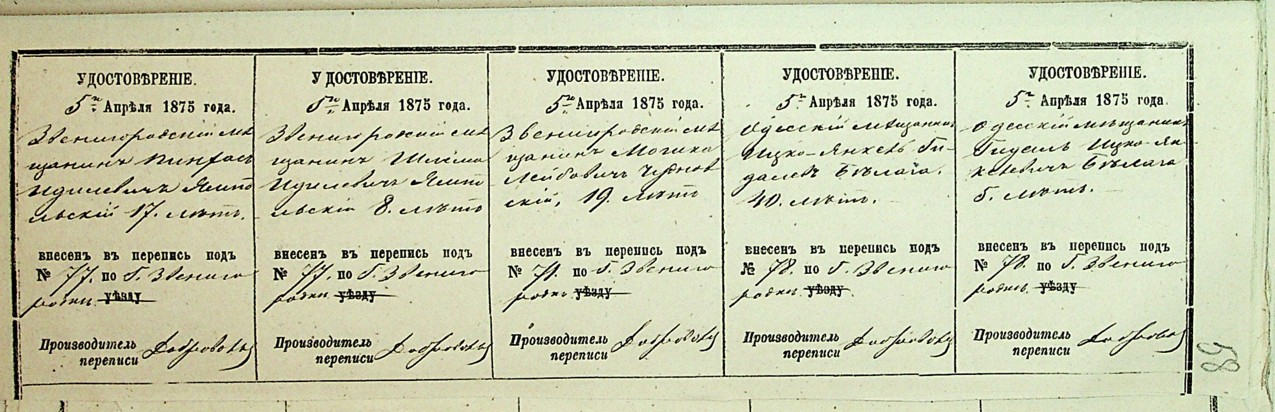 УДОСТОВѢРЕНІЕ.
5го Апрѣля 1875 года.
Звенигородскій мѣ
щанинъ Пинхасъ
Идилевичъ Ямпо
льскій 17. лѣтъ.
внесенъ въ перепись подъ
№ 77. по Г. Звениго
родки уѣзду
Производитель
переписи
УДОСТОВѢРЕНІЕ.
5го Апрѣля 1875 года.
Звенигородскій мѣ
щанинъ Шлёма
Идилевичъ Ямпо
льскій 8. лѣтъ
внесенъ въ перепись подъ
№ 77. по Г. Звениго
родки уѣзду
Производитель
переписи
УДОСТОВѢРЕНІЕ.
5го Апрѣля 1875 года.
Звенигородскій мѣ
щанинъ Мошко
Лейбовичъ Чернов
скій, 19. лѣтъ
внесенъ въ перепись подъ
№ по Г. Звениго
родки уѣзду
Производитель
переписи
УДОСТОВѢРЕНІЕ.
5го Апрѣля 1875 года.
Одесскій мѣщанинъ
Ицко-Янкель Ги-
далев Бѣлага.
40. лѣтъ.
внесенъ въ перепись подъ
№ 78. по Г. Звениго
родки уѣзду
Производитель
переписи
УДОСТОВѢРЕНІЕ.
5го Апрѣля 1875 года
Одесскій мѣщанинъ
Гидель Ицко-Ян
келевичъ Бѣлага
5. лѣтъ.
внесенъ въ перепись подъ
№ 78. по Г. Звениго
родки уѣзду
Производитель
переписи
58